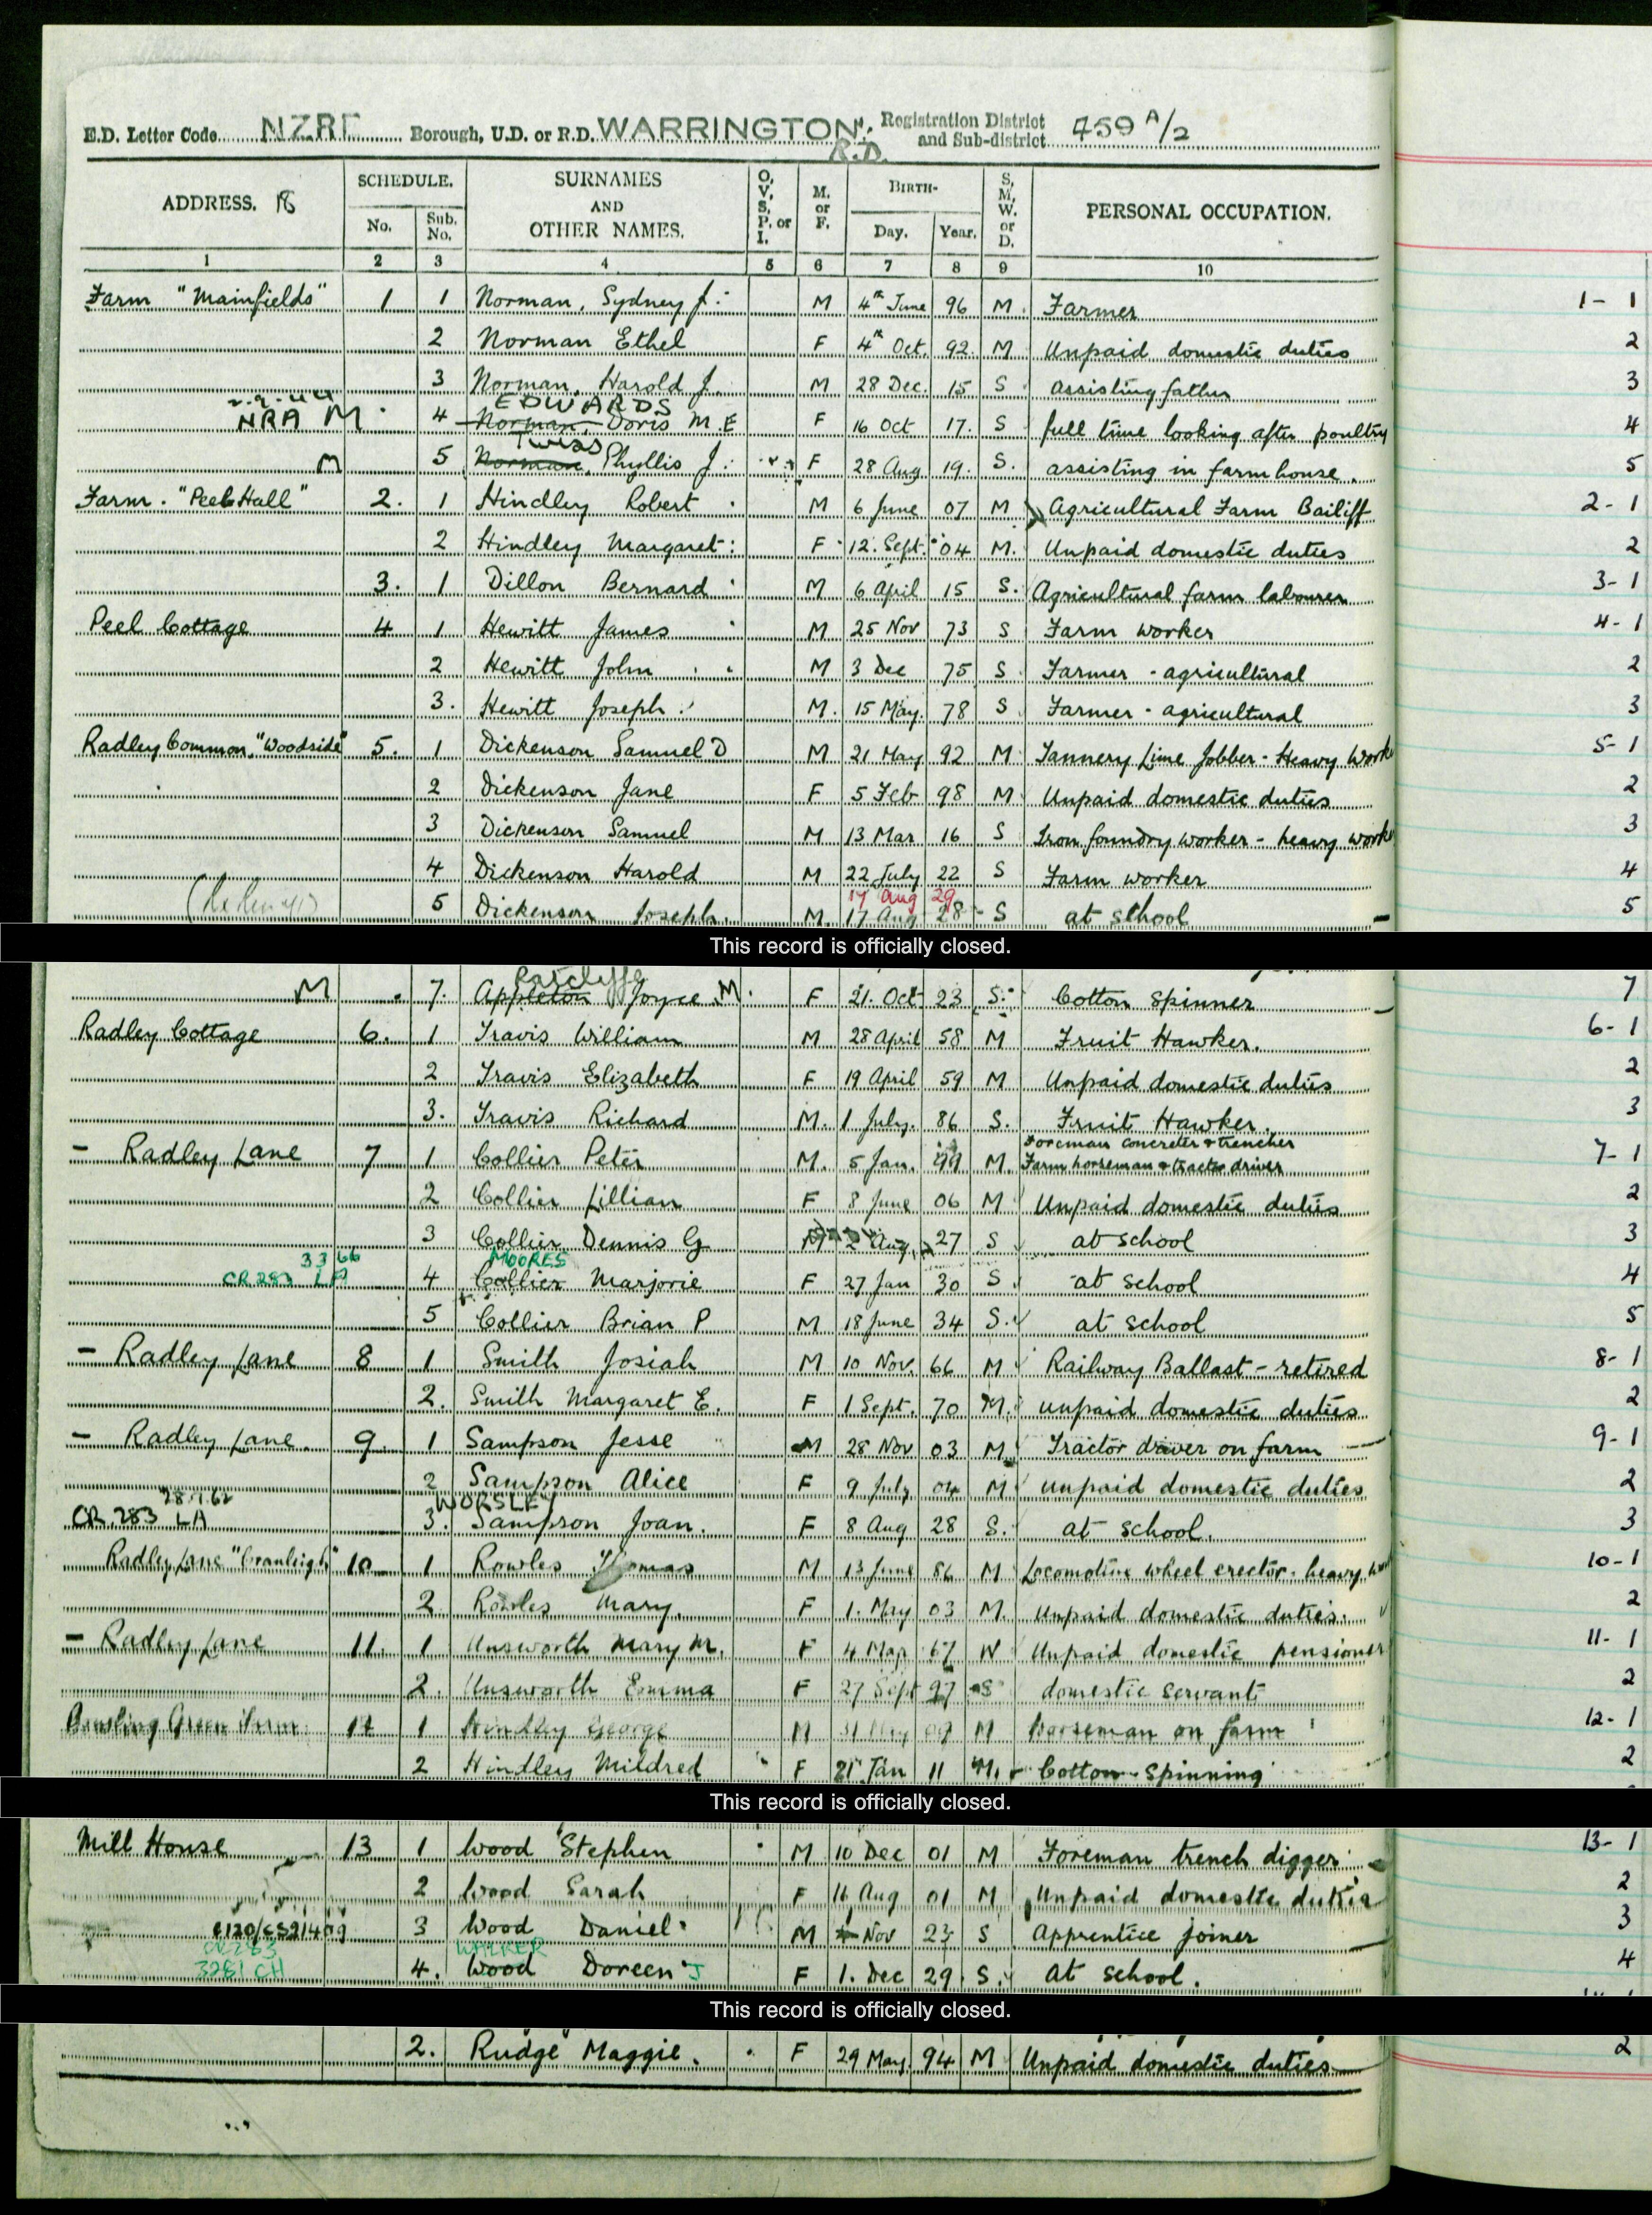 E.D. Letter Code NZRF Borough, U.D. or R.D. WARRINGTON R.D. Registration District and Sub-district 459 A/2
ADDRESS. 18 SCHEDULE. No. Sub. No. SURNAMES AND OTHER NAMES. O, V, S, P. or I. M. or F. BIRTH- Day. Year. S, M, W. or D. PERSONAL OCCUPATION.
1 2 3 4 5 6 7 8 9 10
Farm "Mainfields" 1 1 Norman, Sydney J. M 4th June 96 M. Farmer 1-1
2 Norman Ethel F 4th Oct. 92. M Unpaid domestic duties 2
3 Norman, Harold J. M 28 Dec. 15 S assisting father 3
EDWARDS
NRA M 4 Norman, Doris M.E F 16 Oct 17. S full time looking after poultry 4
Twiss
M 5 Norman, Phyllis J. F 28 Aug 19. S. assisting in farmhouse. 5
Farm. "Peel Hall" 2. 1 Hindley Robert M 6 June 07 M Agricultural Farm Bailiff 2-1
2 Hindley Margaret F 12. Sept. 04 M. Unpaid domestic duties 2
3. 1 Dillon Bernard M 6 April 15 S. Agricultural farm labourer 3-1
Peel Cottage 4 1 Hewitt James M 25 Nov 73 S Farm worker 4-1
2 Hewitt John M 3 Dec 75 S Farmer - agricultural 2
3. Hewitt Joseph M. 15 May. 78 S Farmer - agricultural 3
Radley Common, "Woodside" 5. 1 Dickenson Samuel D M 21 May 92 M Tannery Lime Jobber - Heavy Work 5-1
2 Dickenson Jane F 5 Feb 98 M Unpaid domestic duties 2
3 Dickenson Samuel M 13 Mar 16 S Iron foundry worker - heavy work 3
4 Dickenson Harold M 22 July 22 S Farm worker 4
17 Aug 29
5 Dickenson Joseph. M. 17 Aug 28 S at school 5
This record is officially closed.
Ratclyffe
M 7. Appleton Joyce M. F 21. Oct 23 S. Cotton Spinner 7
Radley Cottage 6. 1 Travis William M 28 April 58 M Fruit Hawker. 6-1
2 Travis Elizabeth F 19 April 59 M Unpaid domestic duties 2
3. Travis Richard M. 1 July. 86 S. Fruit Hawker. 3
Foreman concreter & trencher
- Radley Lane 7 1 Collier Peter M. 5 Jan. 99 M. Farm horseman & tractor driver 7-1
2 Collier Lillian F 8 June 06 M Unpaid domestic duties 2
3 Collier Dennis G M 2 Aug. 27 S at school 3
3366 MOORES
CR 283 LA 4 Collier Marjorie F 27 Jan 30 S at school 4
5 Collier Brian P M 18 June 34 S. at school 5
- Radley Lane 8 1 Smith Josiah M 10 Nov. 66 M Railway Ballast - retired 8-1
2. Smith Margaret E. F 1 Sept. 70 M. unpaid domestic duties 2
- Radley Lane. 9 1 Sampson Jesse M 28 Nov 03 M Tractor driver on farm 9-1
2 Sampson Alice F 9 July 04 M unpaid domestic duties 2
28.7.62 WORSLEY
CR.283 LA 3. Sampson Joan. F 8 Aug 28 S. at school. 3
Radley Lane "Cranleigh" 10 1 Rowles Thomas M 13 June 86 M Locomotive wheel erector. heavy 10-1
2 Rowles Mary. F 1. May 03 M. Unpaid domestic duties. 2
- Radley Lane 11. 1 Unsworth Mary M. F 4 Mar 67 W Unpaid domestic pensioner 11-1
2. Unsworth Emma F 27 Sept 97 S domestic servant 2
Bowling Green Farm 1 Hindley George M 31 M horseman on farm 12-1
2 Hindley Mildred F 21 Jan 11 M. Cotton Spinning 2
This record is officially closed.
Mill House 13 1 Wood Stephen M 10 Dec 01 M Foreman trench digger 13-1
2 Wood Sarah F 16 Aug 01 M Unpaid domestic duties 2
3 Wood Daniel M Nov 23 S Apprentice joiner 3
CR283 WALKER
3281 CH 4. Wood Doreen J F 1. Dec 29. S. at school. 4
This record is officially closed.
2. Rudge Maggie. F 29 May. 94 M Unpaid domestic duties 2